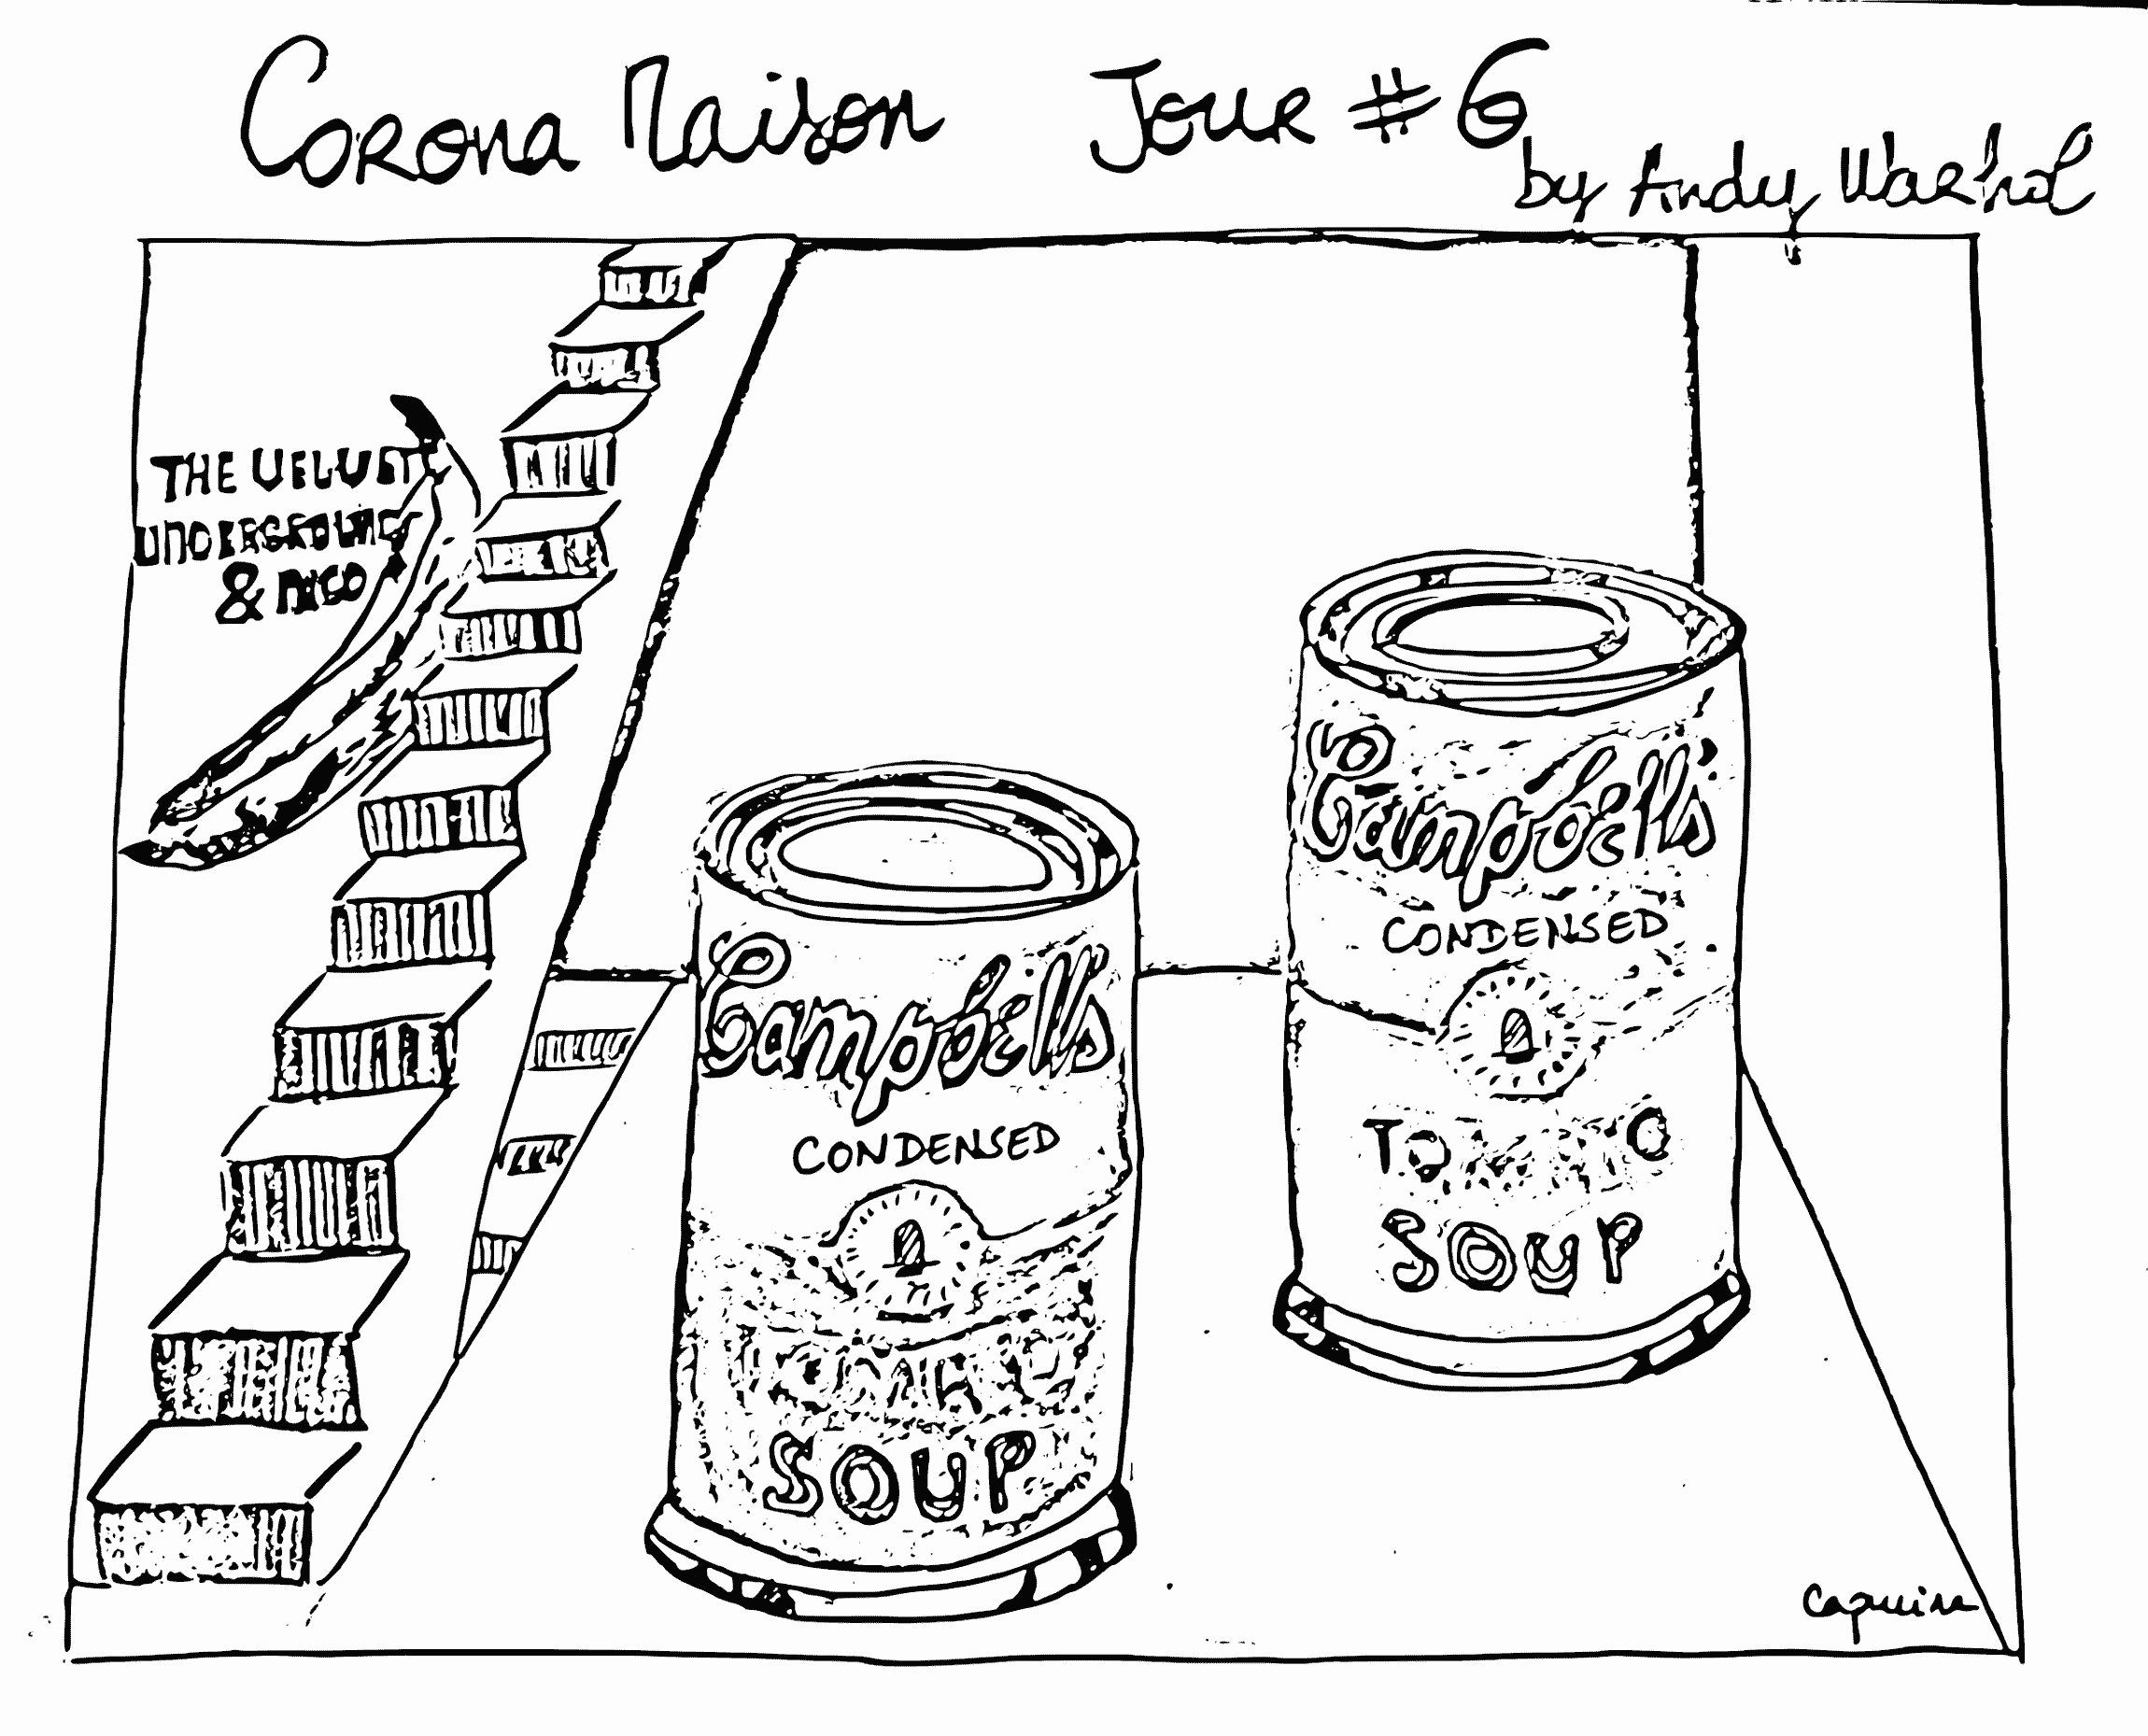 Corona Maison Jour #6
by Andy Warhol
THE VELVET
UNDERGROUND
& NICO
Campbell's
CONDENSED
TOMATO
SOUP
Campbell's
CONDENSED
SOUP